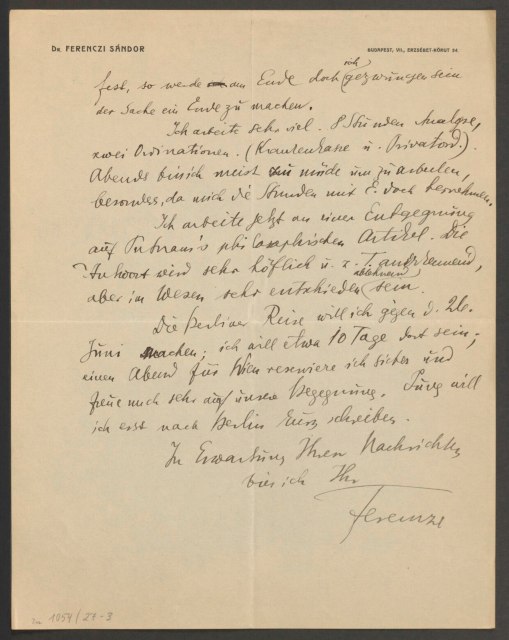 Dr. FERENCZI SÁNDOR
BUDAPEST, VII., ERZSÉBET-KÖRUT 54.
fest, so werde am Ende doch ich gezwungen sein
der Sache ein Ende zu machen.
Ich arbeite sehr viel. 8 Stunden Analyse,
zwei Ordinationen. (Krankenkasse u. Privatord.).
Abends bin ich meist zu müde um zu arbeiten,
besonders, da mich die Stunden mit E. doch hernehmen.
Ich arbeite jetzt an einer Entgegnung
auf Putnam's philosophischen Artikel. Die
Antwort wird sehr höflich u. z. T. anerkennend,
aber im Wesen sehr entschieden ablehnend sein.
Die Berliner Reise will ich gegen d. 26.
Juni machen; ich will etwa 10 Tage dort sein;
einen Abend für Wien reserviere ich sicher und
freue mich sehr auf unsere Begegnung. Jung will
ich erst nach Berlin kurz schreiben.
In Erwartung Ihrer Nachrichten
bin ich Ihr
Ferenczi
1054/27-3